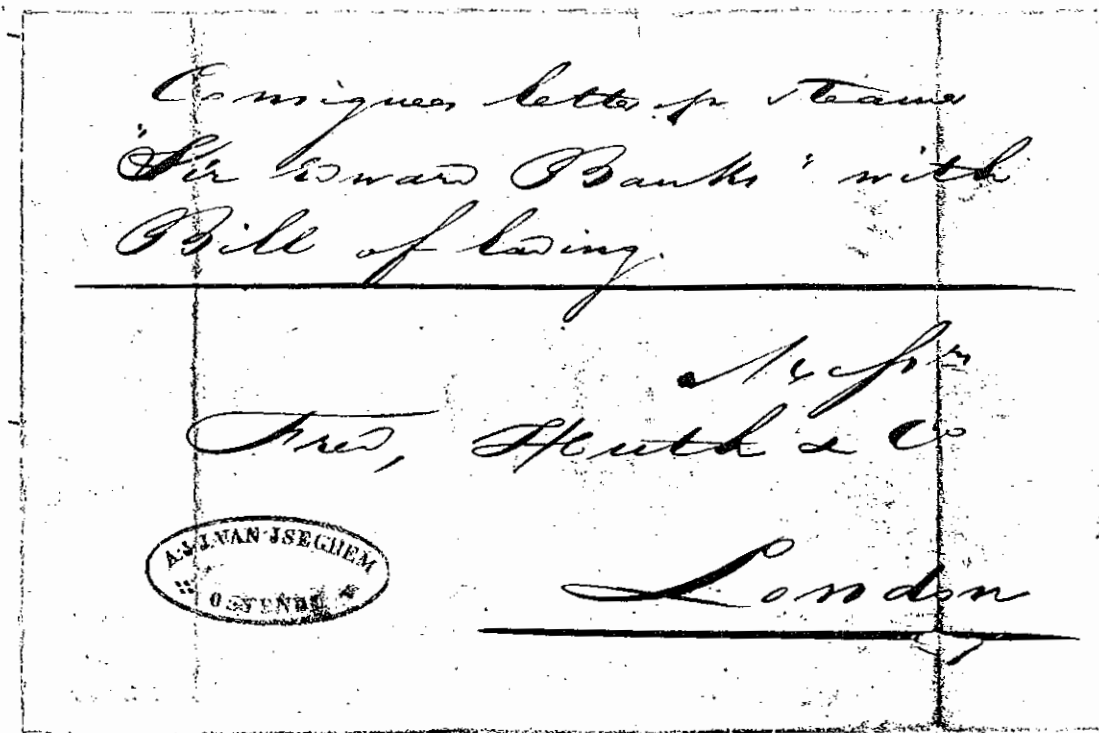 Consignees letter pr Steamer
"Sir Edward Banks" with
Bill of lading.
Messrs
Fred, Huth & Co
London
A.J.J. VAN JSEGHEM
OSTENDE